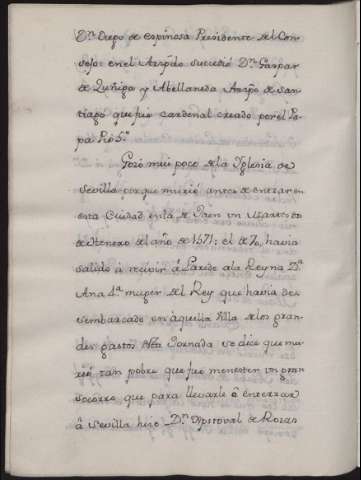 Dn. Diego de espinosa Presidente del Con
sejo: en el Arzpdo sucedió Dn. Gaspar
de Zuñiga y Abellaneda Arzpo de san-
tiago que fue cardenal creado por el Pa
pa Pio 5º
Gozó mui poco de la Iglesia de
Sevilla porque murió antes de entrar en
esta Ciudad en la de Jaén un Martes dos
de Henero del año de 1571; el de 70, havia
salido a recivir á Laredo a la Reyna Da
Ana 4a muger del Rey que havia des
sembarcado en aquella Villa de los gran-
des gastos desta Jornada se dice que mu
rió tan pobre que fue menester un gran
socorro que para llevarle â enterrar
â Sevilla hizo Dn. Christoval de Roxas